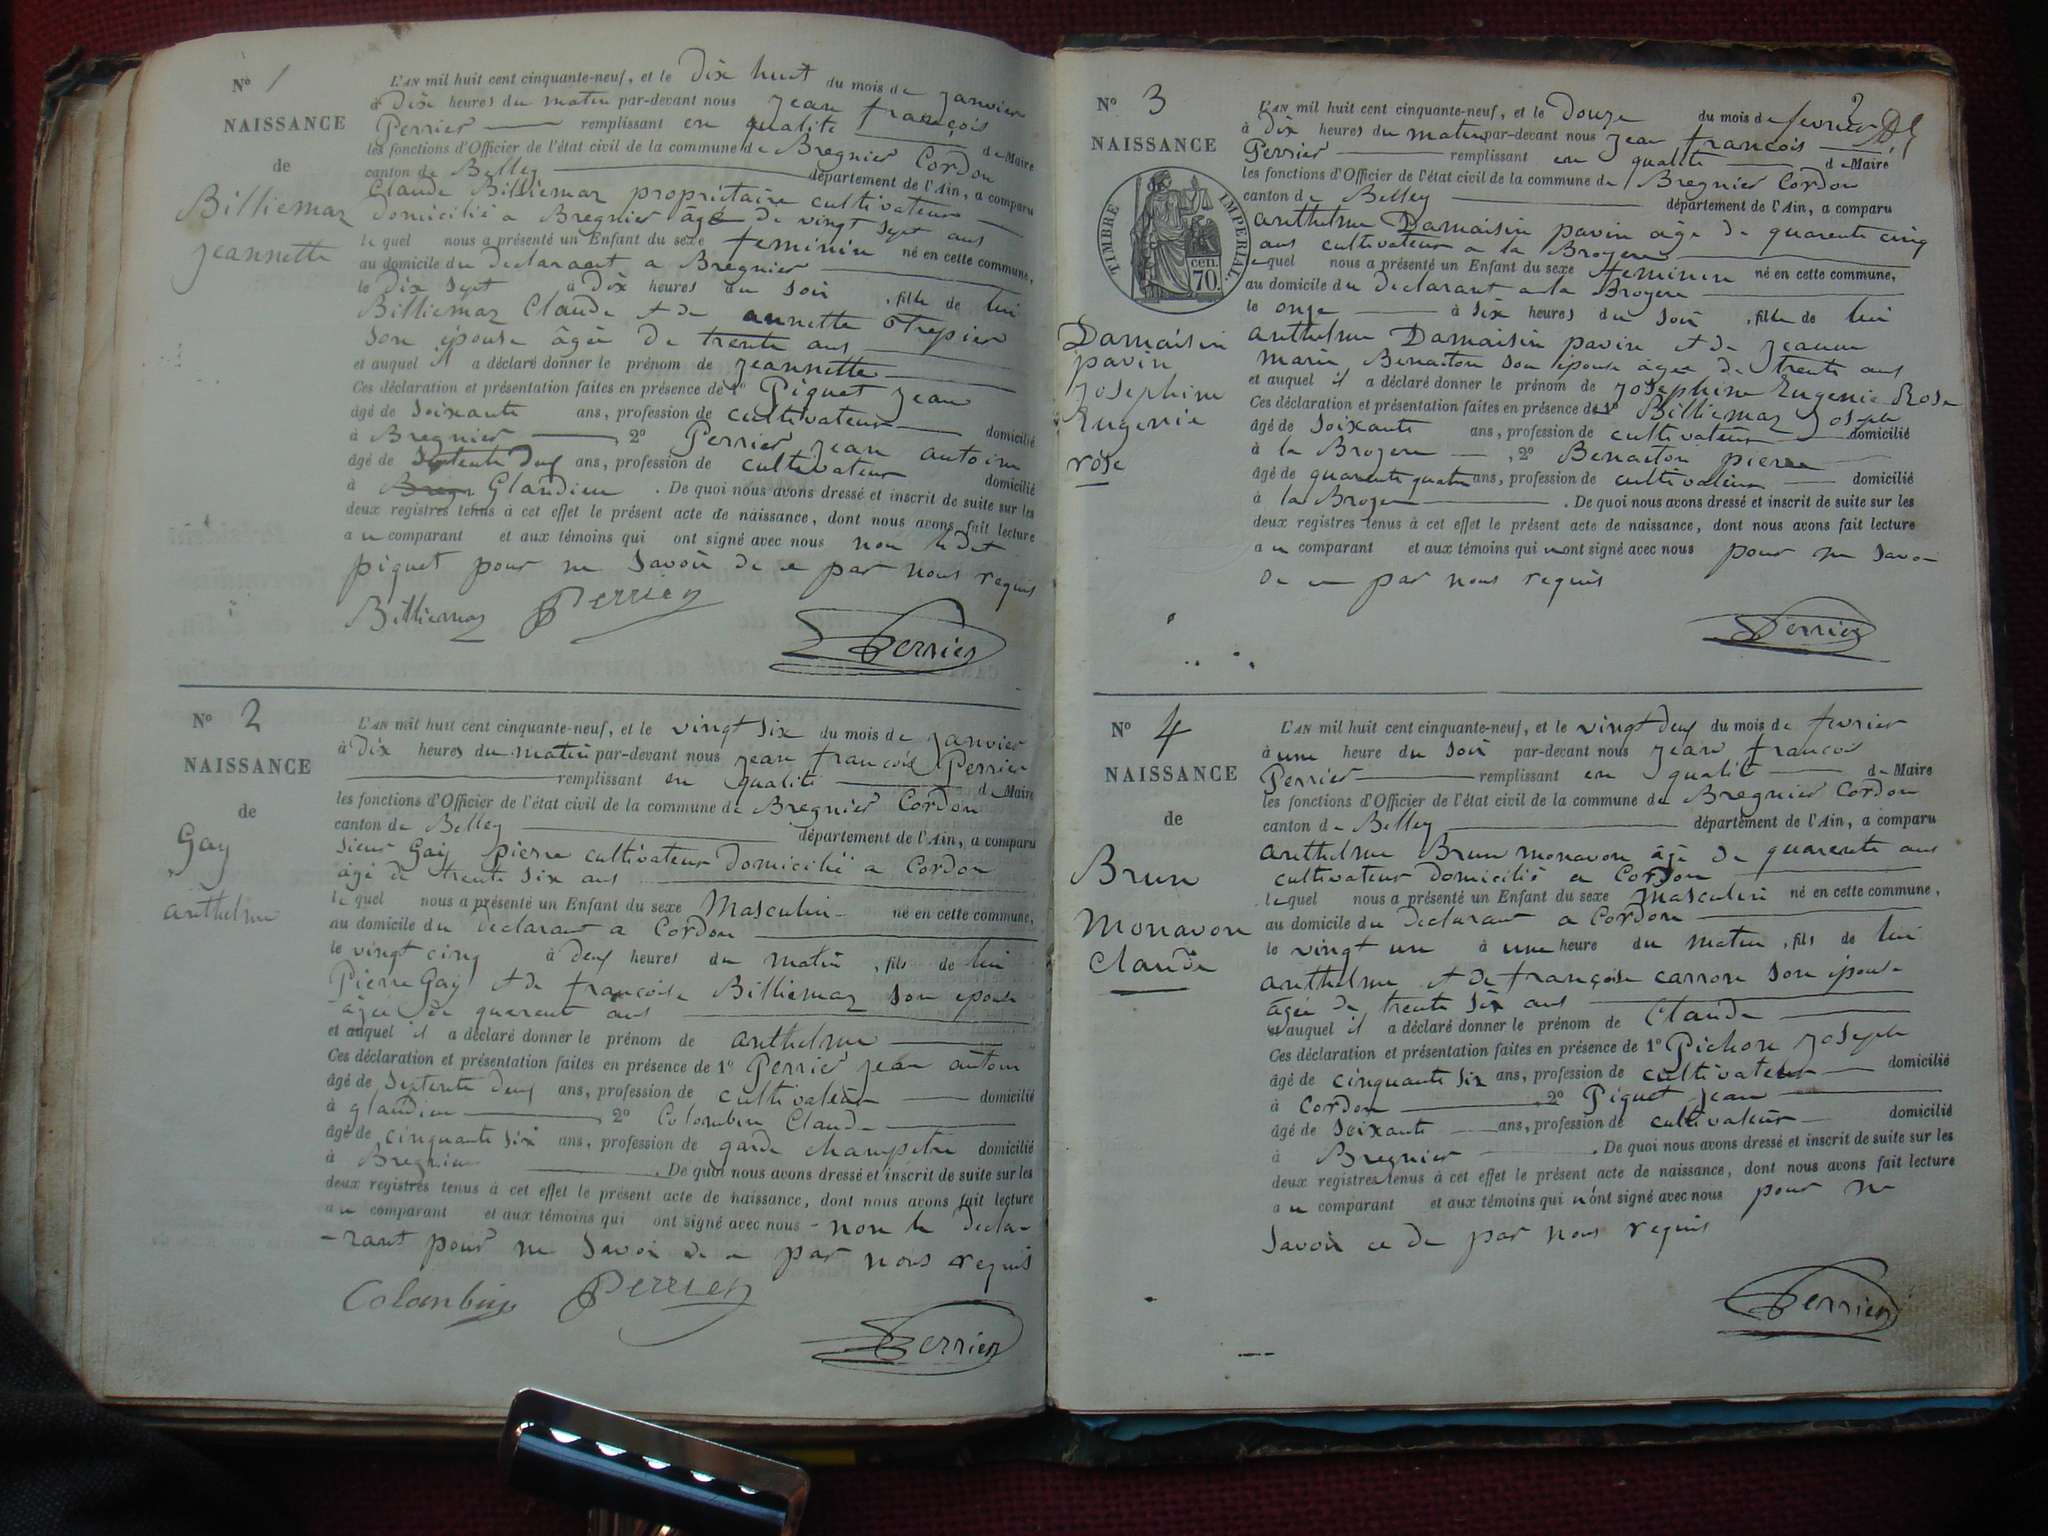 N° 1
NAISSANCE
de
Billiemaz
jeannette
L'AN mil huit cent cinquante-neuf, et le Dix huit du mois de janvier
à Dix heures du matin par-devant nous jean françois
Perrier remplissant en qualité de Maire
les fonctions d'Officier de l'état civil de la commune de Bregnier Cordon
canton de Belley département de l'Ain, a comparu
Claude Billiemaz propriétaire cultivateur
domicilié a Bregnier âgé de vingt sept ans
lequel nous a présenté un Enfant du sexe feminin né en cette commune,
au domicile du declarant a Bregnier
le Dix sept à Dix heures du soir, fille de lui
Billiemaz Claude et de annette
son épouse âgée de trente ans
et auquel il a déclaré donner le prénom de jeannette
Ces déclaration et présentation faites en présence de 1° Piquet jean
âgé de soixante ans, profession de cultivateur domicilié
à Bregnier 2° Perrier jean antoine
âgé de septente deux ans, profession de cultivateur domicilié
à Glandieu. De quoi nous avons dressé et inscrit de suite sur les
deux registres tenus à cet effet le présent acte de naissance, dont nous avons fait lecture
au comparant et aux témoins qui ont signé avec nous non ledit
piquet pour ne savoir de ce par nous requis
Billiemaz Perrier
Perrier
N° 2
NAISSANCE
de
Gay
anthelme
L'AN mil huit cent cinquante-neuf, et le vingt six du mois de janvier
à Dix heures du matin par-devant nous jean françois Perrier
remplissant en qualité de Maire
les fonctions d'Officier de l'état civil de la commune de Bregnier Cordon
canton de Belley département de l'Ain, a comparu
sieur Gay pierre cultivateur domicilié a Cordon
âgé de trente six ans
lequel nous a présenté un Enfant du sexe Masculin né en cette commune,
au domicile du declarant a Cordon
le vingt cinq à deux heures du matin, fils de lui
Pierre Gay et de françoise Billiemaz son epouse
âgée de quarent ans
et auquel il a déclaré donner le prénom de anthelme
Ces déclaration et présentation faites en présence de 1° Perrier jean antoin
âgé de septente deux ans, profession de cultivateur domicilié
à glandieu 2° Colombin Claude
âgé de cinquante six ans, profession de garde champetre domicilié
à Bregnier. De quoi nous avons dressé et inscrit de suite sur les
deux registres tenus à cet effet le présent acte de naissance, dont nous avons fait lecture
au comparant et aux témoins qui ont signé avec nous non le decla-
-rant pour ne savoir de ce par nous requis
Colombin Perrier
Perrier
N° 3
NAISSANCE
TIMBRE IMPERIAL
70 cen.
Damaisin
pavin
josephine
Eugenie
rose
2
L'AN mil huit cent cinquante-neuf, et le Douze du mois de fevrier
à Dix heures du matin par-devant nous jean françois
Perrier remplissant en qualité de Maire
les fonctions d'Officier de l'état civil de la commune de Bregnier Cordon
canton de Belley département de l'Ain, a comparu
anthelme Damaisin pavin age de quarente cinq
ans cultivateur a la Broyere
lequel nous a présenté un Enfant du sexe feminin né en cette commune,
au domicile du declarant a la Broyere
le onze à six heures du soir, fille de lui
anthelme Damaisin pavin et de jeanne
marie Benaiton son épouse âgée de trente ans
et auquel il a déclaré donner le prénom de josephine Eugenie Rose
Ces déclaration et présentation faites en présence de 1° Billiemaz joseph
âgé de soixante ans, profession de cultivateur domicilié
à la Broyere, 2° Benaiton pierre
âgé de quarente quatre ans, profession de cultivateur domicilié
à la Broyer. De quoi nous avons dressé et inscrit de suite sur les
deux registres tenus à cet effet le présent acte de naissance, dont nous avons fait lecture
au comparant et aux témoins qui nont signé avec nous pour ne savoi
de ce par nous requis
Perrier
N° 4
NAISSANCE
de
Brun
Monavon
Claude
L'AN mil huit cent cinquante-neuf, et le vingt deux du mois de fevrier
à une heure du soir par-devant nous jean francois
Perrier remplissant en qualité de Maire
les fonctions d'Officier de l'état civil de la commune de Bregnier Cordon
canton de Belley département de l'Ain, a comparu
anthelme Brun monavon âgé de quarente ans
cultivateur domicilié a Cordon
lequel nous a présenté un Enfant du sexe Masculin né en cette commune,
au domicile du declarant a Cordon
le vingt un à une heure du matin, fils de lui
anthelme et de françoise carron son épouse
âgée de trente six ans
et auquel il a déclaré donner le prénom de Claude
Ces déclaration et présentation faites en présence de 1° Pichon joseph
âgé de cinquante six ans, profession de cultivateur domicilié
à Cordon, 2° Piquet jean
âgé de soixante ans, profession de cultivateur domicilié
à Bregnier. De quoi nous avons dressé et inscrit de suite sur les
deux registres tenus à cet effet le présent acte de naissance, dont nous avons fait lecture
au comparant et aux témoins qui n'ont signé avec nous pour ne
savoir ce de par nous requis
Perrier